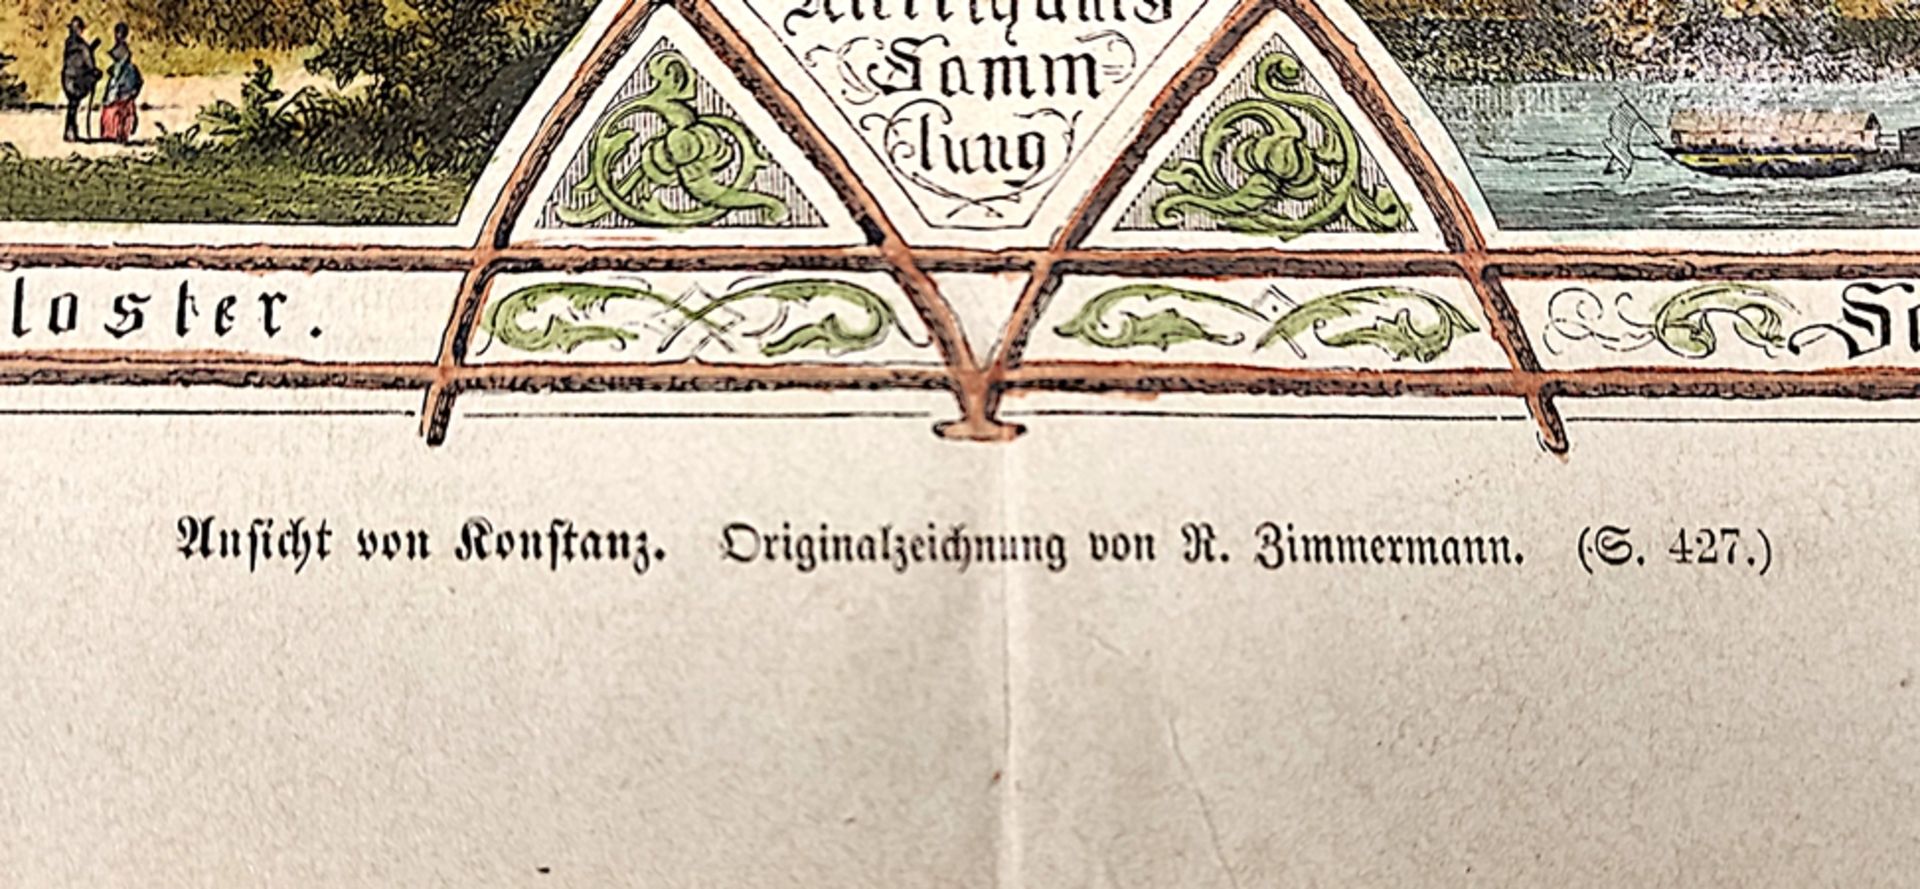 Samm-
lung
loster.
Ansicht von Konstanz. Originalzeichnung von R. Zimmermann. (S. 427.)